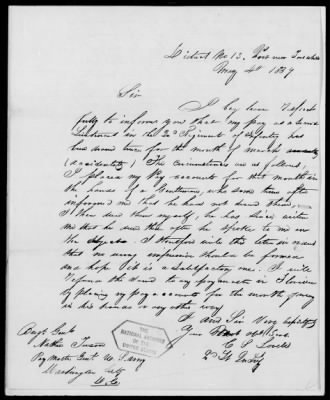 District No 13. Post near
May 4th 1839
Sir
I beg leave respect
fully to inform you that my pay as a
Lieutenant in the 2d Regiment of Infantry has
been drawn twice for the month of March
(accidentally) The circumstances are as follows;
I placed my Pay accounts for that month in
the hands of a Gentleman, who some time after
informed me that he had not drawn them
I then drew them myself, he has since
me that he drew them after he spoke to me on
the subject. I therefore write this letter in
that no wrong impression should be formed
and hope it is satisfactory
I will
refund the amount to my paymaster in Florida
by placing my pay accounts for the month of
in his hands or any other way
I am Sir Very respectfully
Your Obt Servt
C S Lovell
2d Lt 2d Infy
Nathan Towson
Pay Master Genl U. S. Army
Washington City
THE
NATIONAL ARCHIVES
OF THE
UNITED STATES